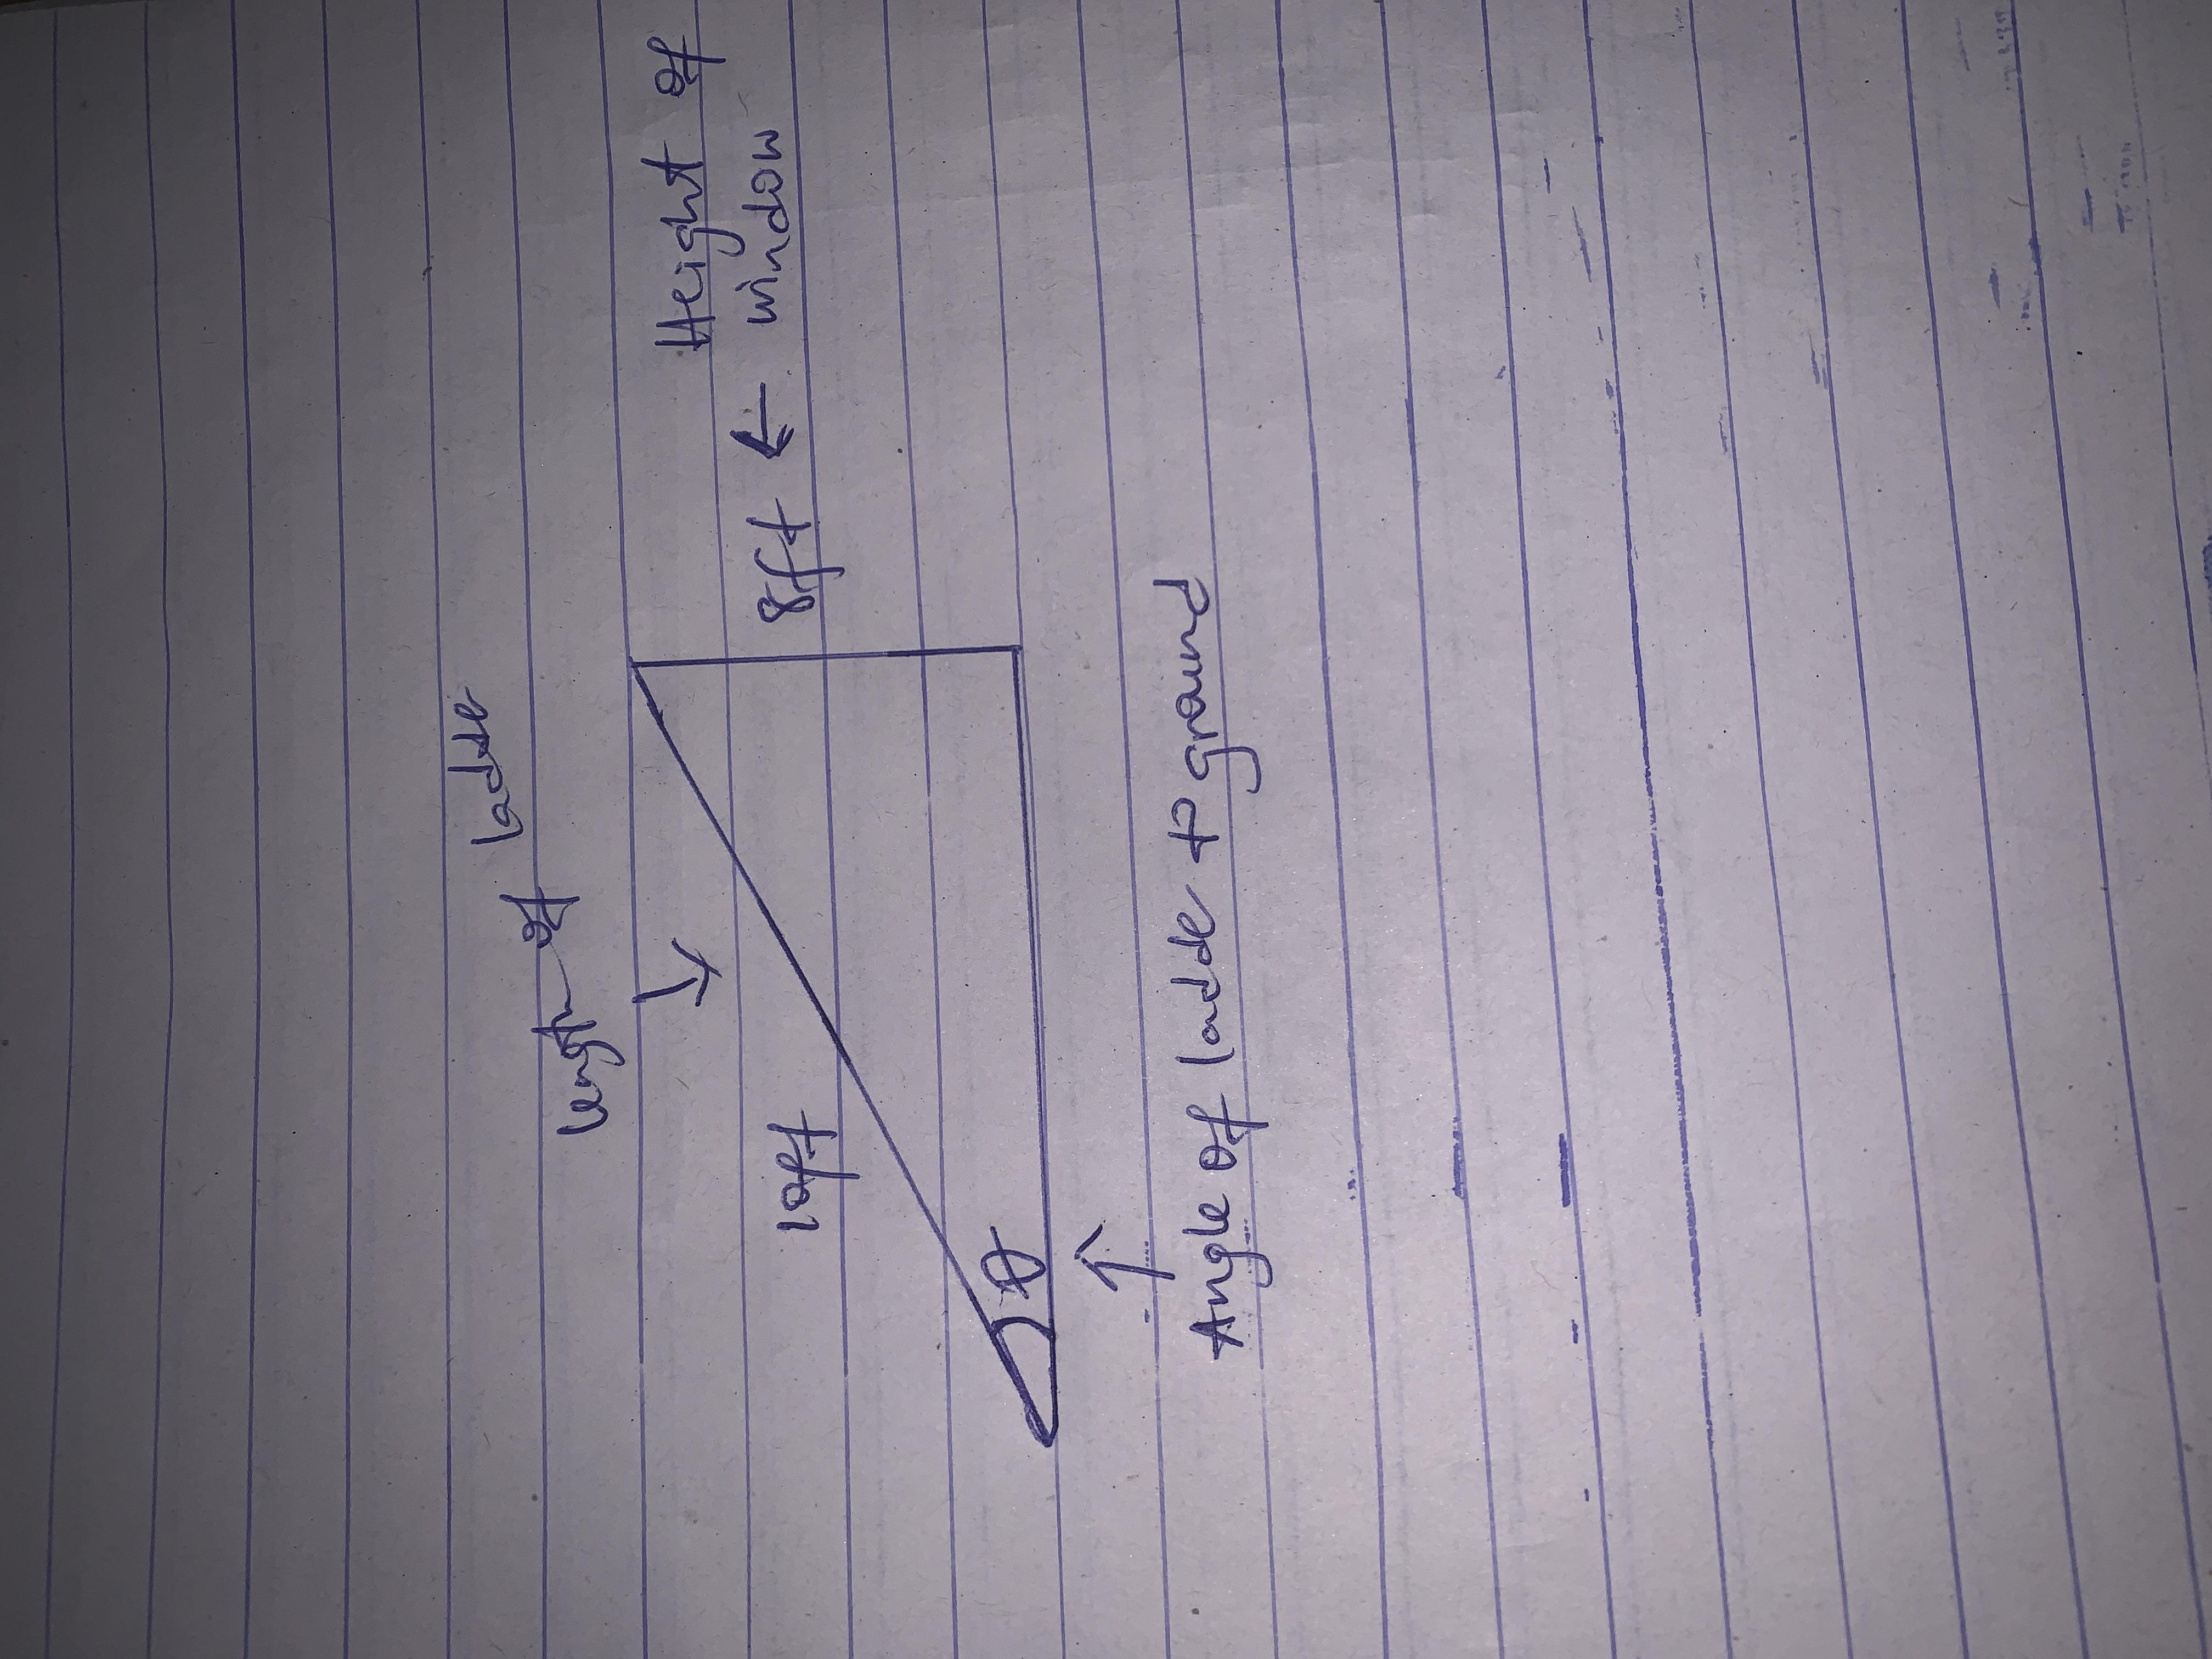 length of ladder
10ft
8ft ← Height of
window
θ
Angle of ladde to ground